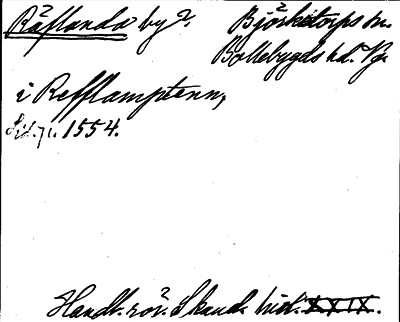 Räflanda by?. Björketorps sn.
Bollebygds hd. Vg.
i Refflamptenn,
1554.
Handl. rör. Skand. hist. XXIX.